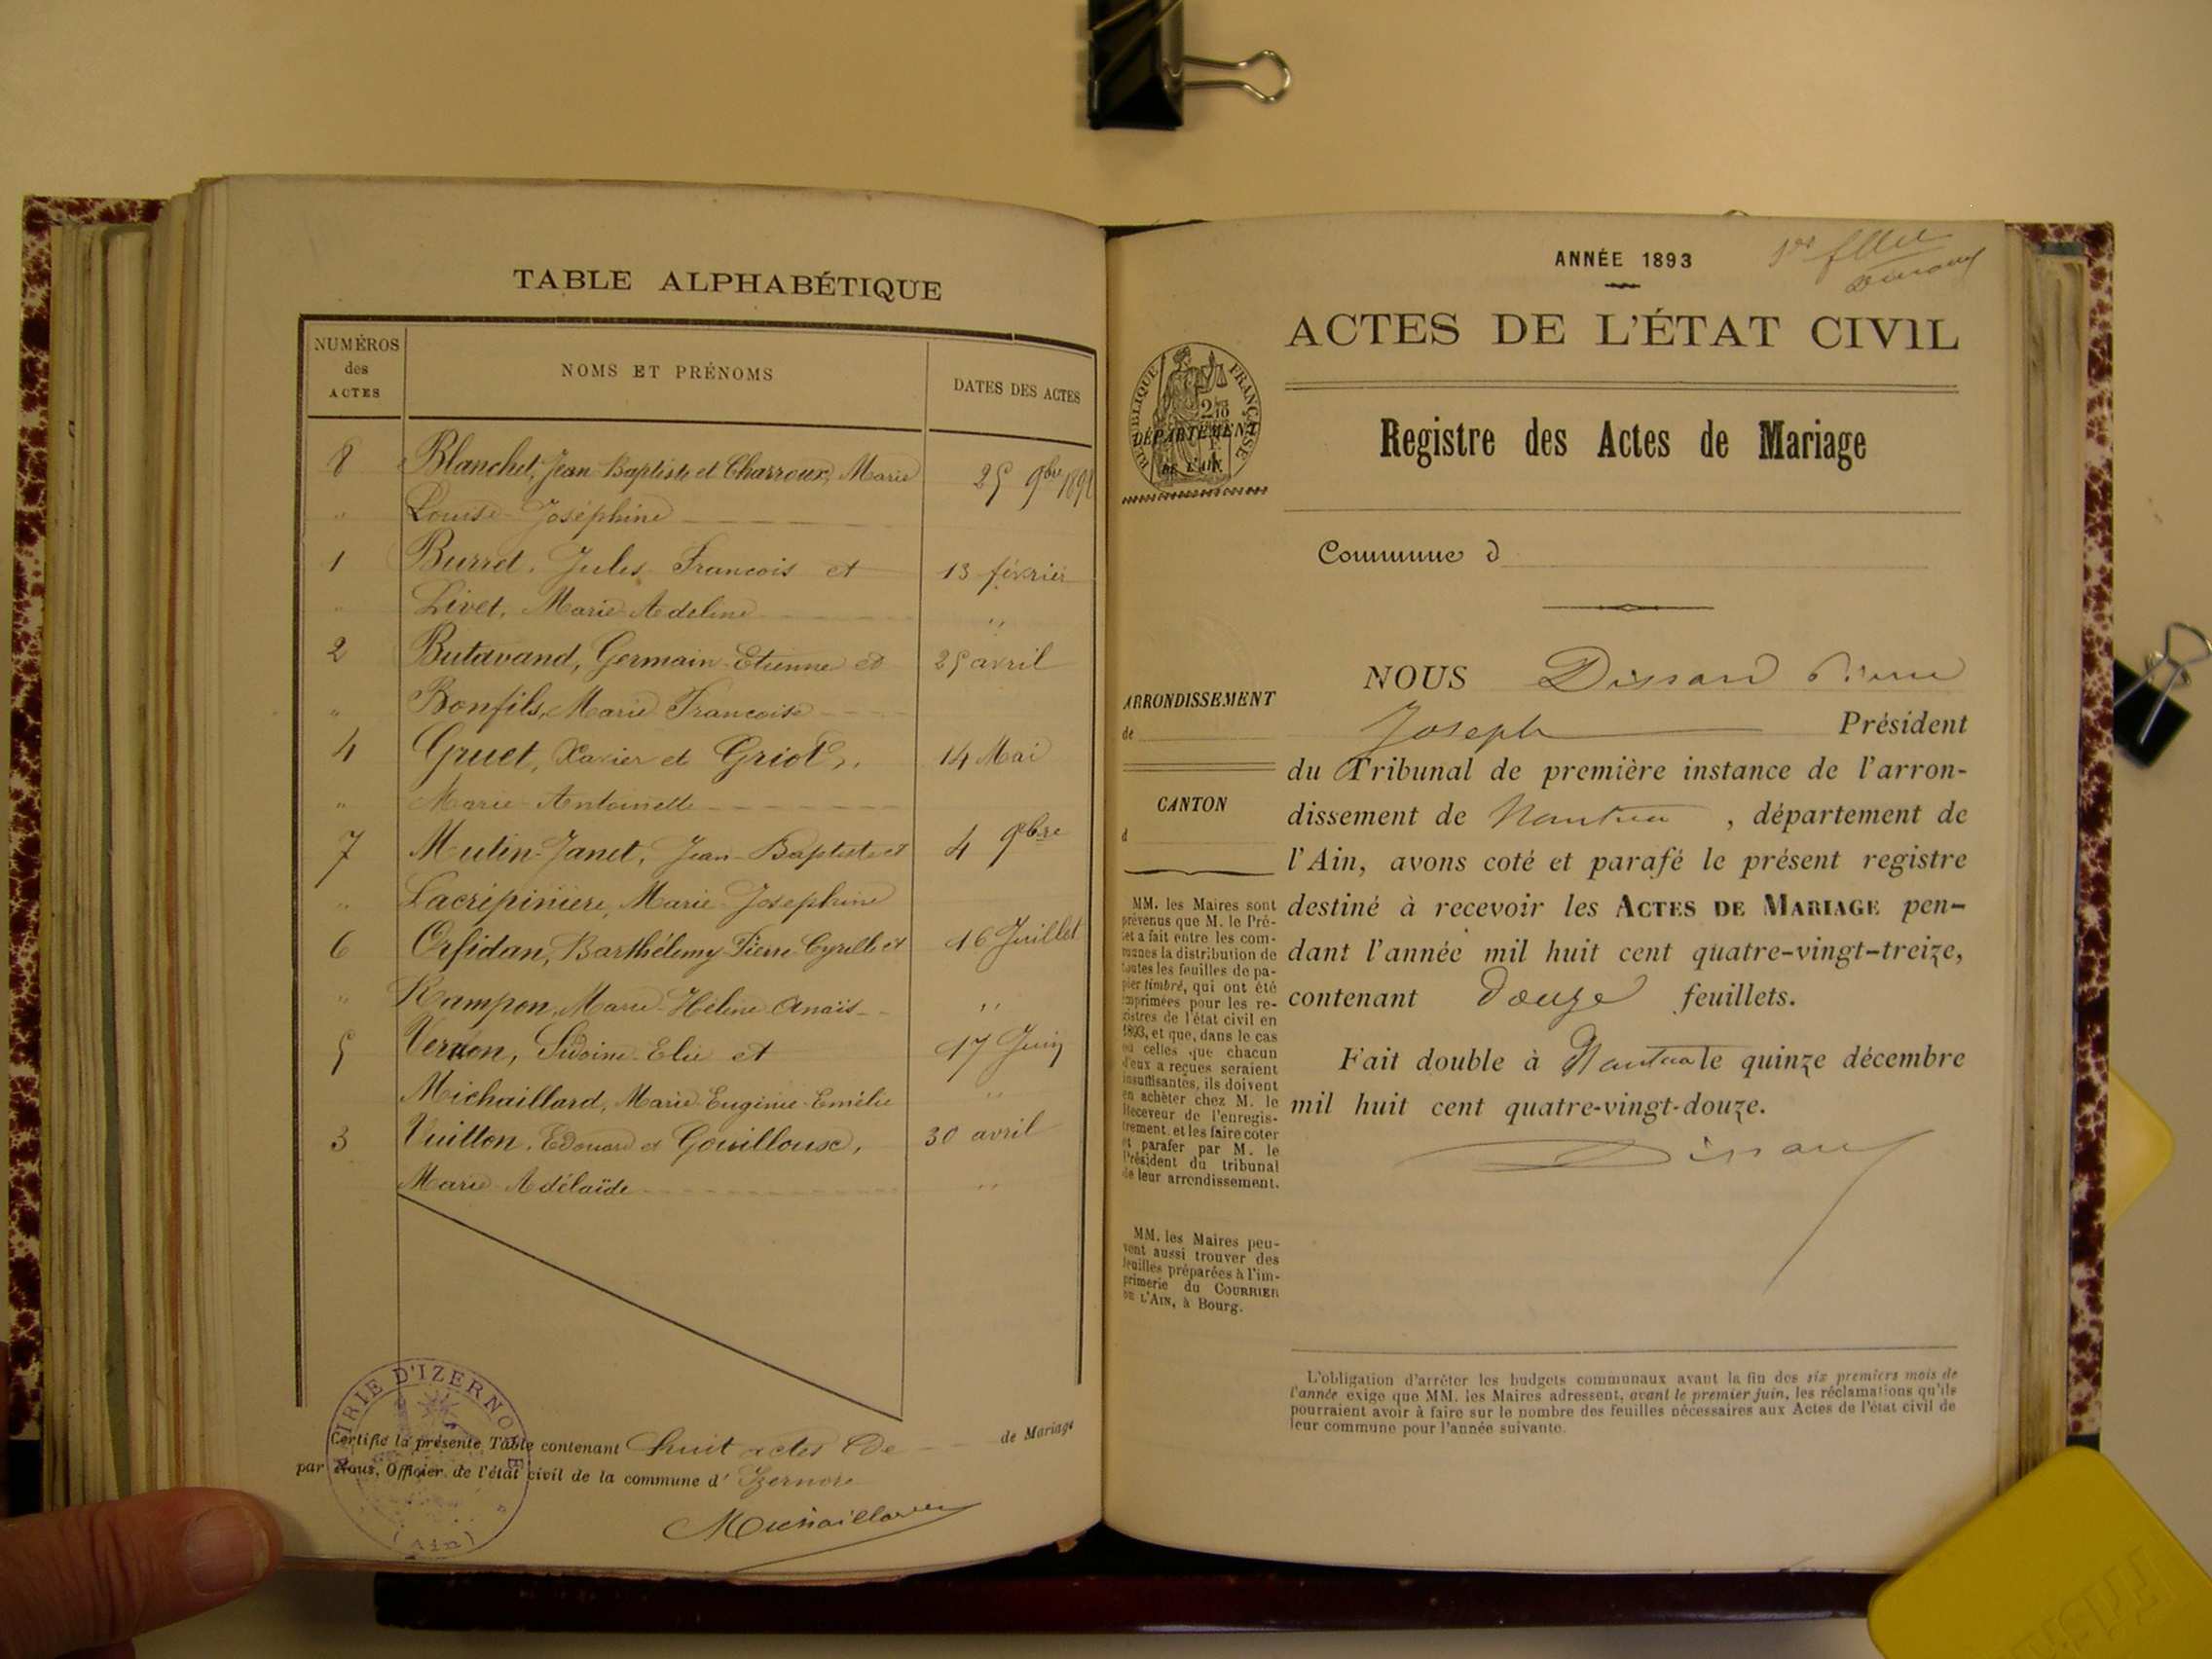 TABLE ALPHABÉTIQUE
NUMÉROS des ACTES
NOMS ET PRÉNOMS
DATES DES ACTES
8 Blanchet, Jean Baptiste et Charroux, Marie 25 9bre 1892
" Louise Joséphine
1 Burret, Jules François et 13 février
" Livet, Marie Adeline "
2 Butavand, Germain Etienne et 25 avril
" Bonfils, Marie Françoise
4 Gruet, Xavier et Griot, 14 Mai
" Marie Antoinette
7 Mutin-Janet, Jean-Baptiste et 4 9bre
" Lacrépinière, Marie Joséphine
6 Orsidan, Barthélemy Pierre Cyrille et 16 Juillet
" Rampon, Marie Hélène Anaïs "
5 Vernon, Sidoine Elie et 17 Juin
Michaillard, Marie Eugénie Emélie "
3 Vuitton, Edouard et Gouilloux, 30 avril
Marie Adélaïde "
MAIRIE D'IZERNORE
(Ain)
Certifié la présente Table contenant huit actes de de Mariage
par Nous, Officier de l'état civil de la commune d' Izernore
ANNÉE 1893
1er
ACTES DE L'ÉTAT CIVIL
RÉPUBLIQUE FRANÇAISE
DÉPARTEMENT
DE L'AIN
Registre des Actes de Mariage
Commune d
ARRONDISSEMENT
de
CANTON
d
MM. les Maires sont
prévenus que M. le Pré-
fet a fait entre les com-
munes la distribution de
toutes les feuilles de pa-
pier timbré, qui ont été
imprimées pour les re-
gistres de l'état civil en
1893, et que, dans le cas
où celles que chacun
d'eux a reçues seraient
insuffisantes, ils doivent
en achèter chez M. le
Receveur de l'enregis-
trement, et les faire coter
et parafer par M. le
Président du tribunal
de leur arrondissement.
MM. les Maires peu-
vent aussi trouver des
feuilles préparées à l'im-
primerie du COURRIER
DE L'AIN, à Bourg.
NOUS Dissard Pierre
Joseph Président
du Tribunal de première instance de l'arron-
dissement de Nantua, département de
l'Ain, avons coté et parafé le présent registre
destiné à recevoir les ACTES DE MARIAGE pen-
dant l'année mil huit cent quatre-vingt-treize,
contenant douze feuillets.
Fait double à Nantua le quinze décembre
mil huit cent quatre-vingt-douze.
Dissard
L'obligation d'arrêter les budgets communaux avant la fin des six premiers mois de
l'année exige que MM. les Maires adressent, avant le premier juin, les réclamations qu'ils
pourraient avoir à faire sur le nombre des feuilles nécessaires aux Actes de l'état civil de
leur commune pour l'année suivante.